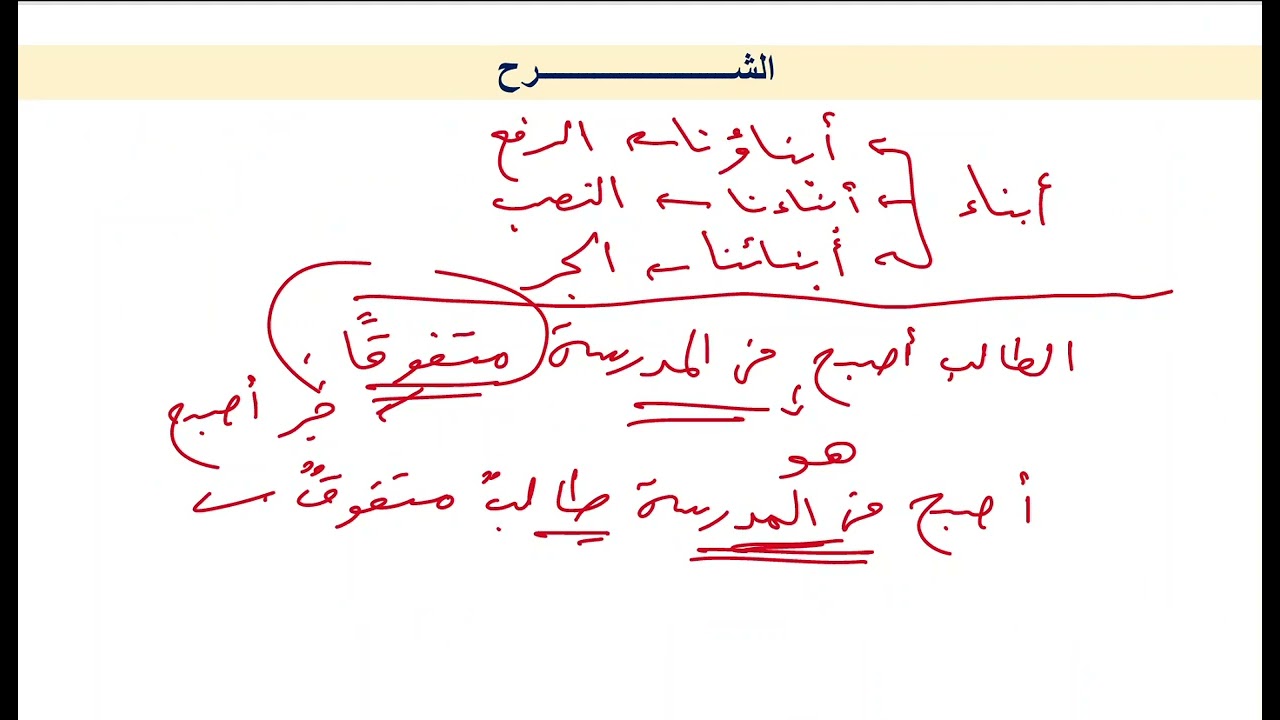 الشرح
أبناؤنا ← الرفع
أبناء ← أبناءنا ← النصب
أبنائنا ← الجر
الطالب أصبح في المدرسة متفوقًا.
خبر أصبح
هو
أصبح في المدرسة طالبٌ متفوقٌ ←